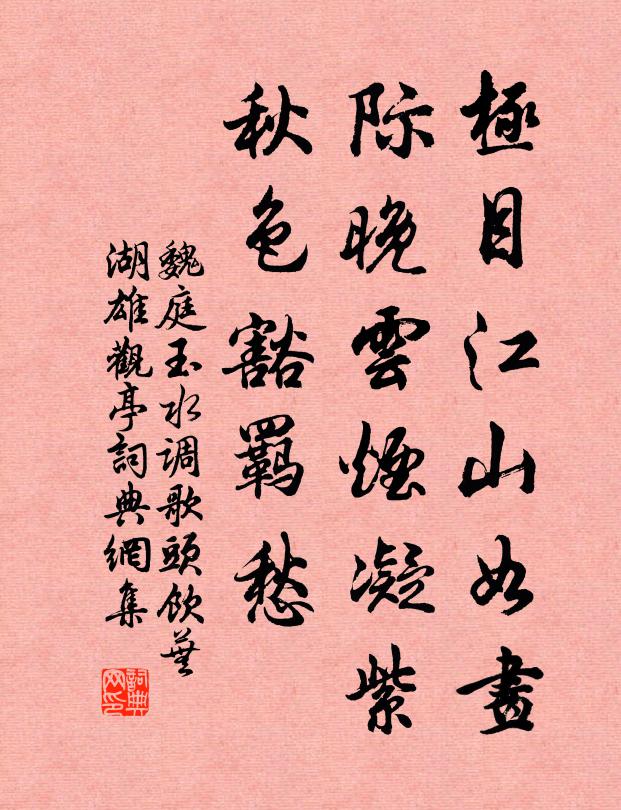 極目江山如畫
际晚雲煙凝紫
秋色豁羈愁
魏庭玉水调歌頭飲蕪
湖雄觀亭詞典網集
詞典网印